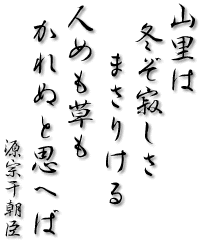 山里は
冬ぞ寂しさ
まさりける
人めも草も
かれぬと思へば
源宗于朝臣